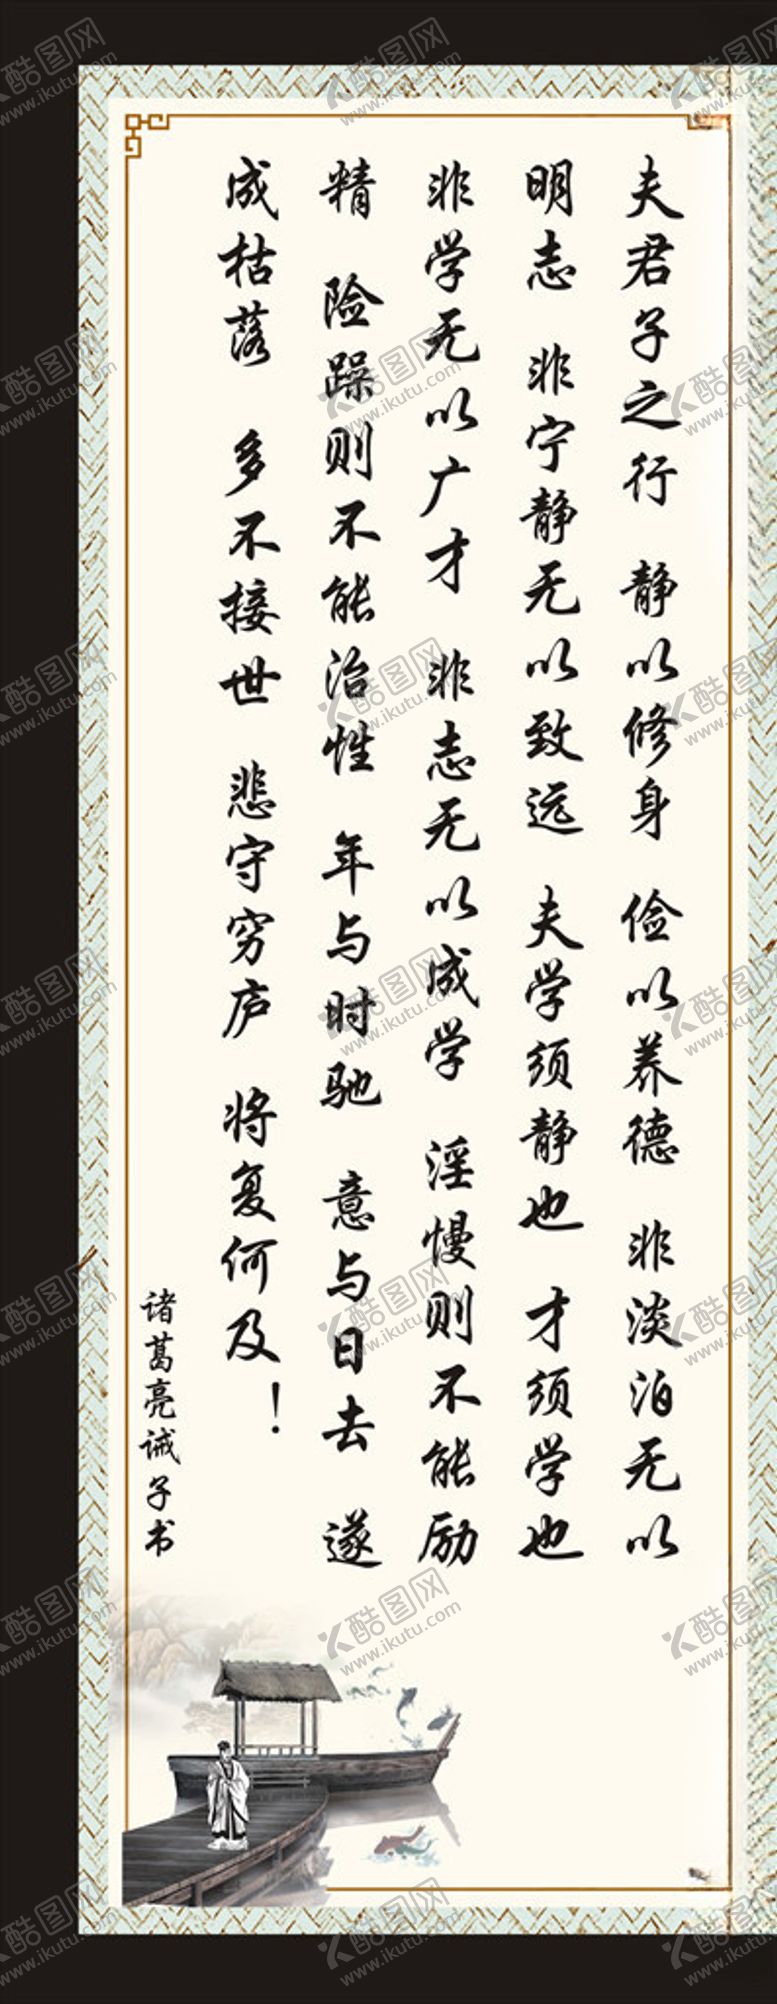 夫君子之行 静以修身 俭以养德 非淡泊无以
明志 非宁静无以致远 夫学须静也 才须学也
非学无以广才 非志无以成学 淫慢则不能励
精 险躁则不能治性 年与时驰 意与日去 遂
成枯落 多不接世 悲守穷庐 将复何及！
诸葛亮诫子书
酷图网
www.ikutu.com